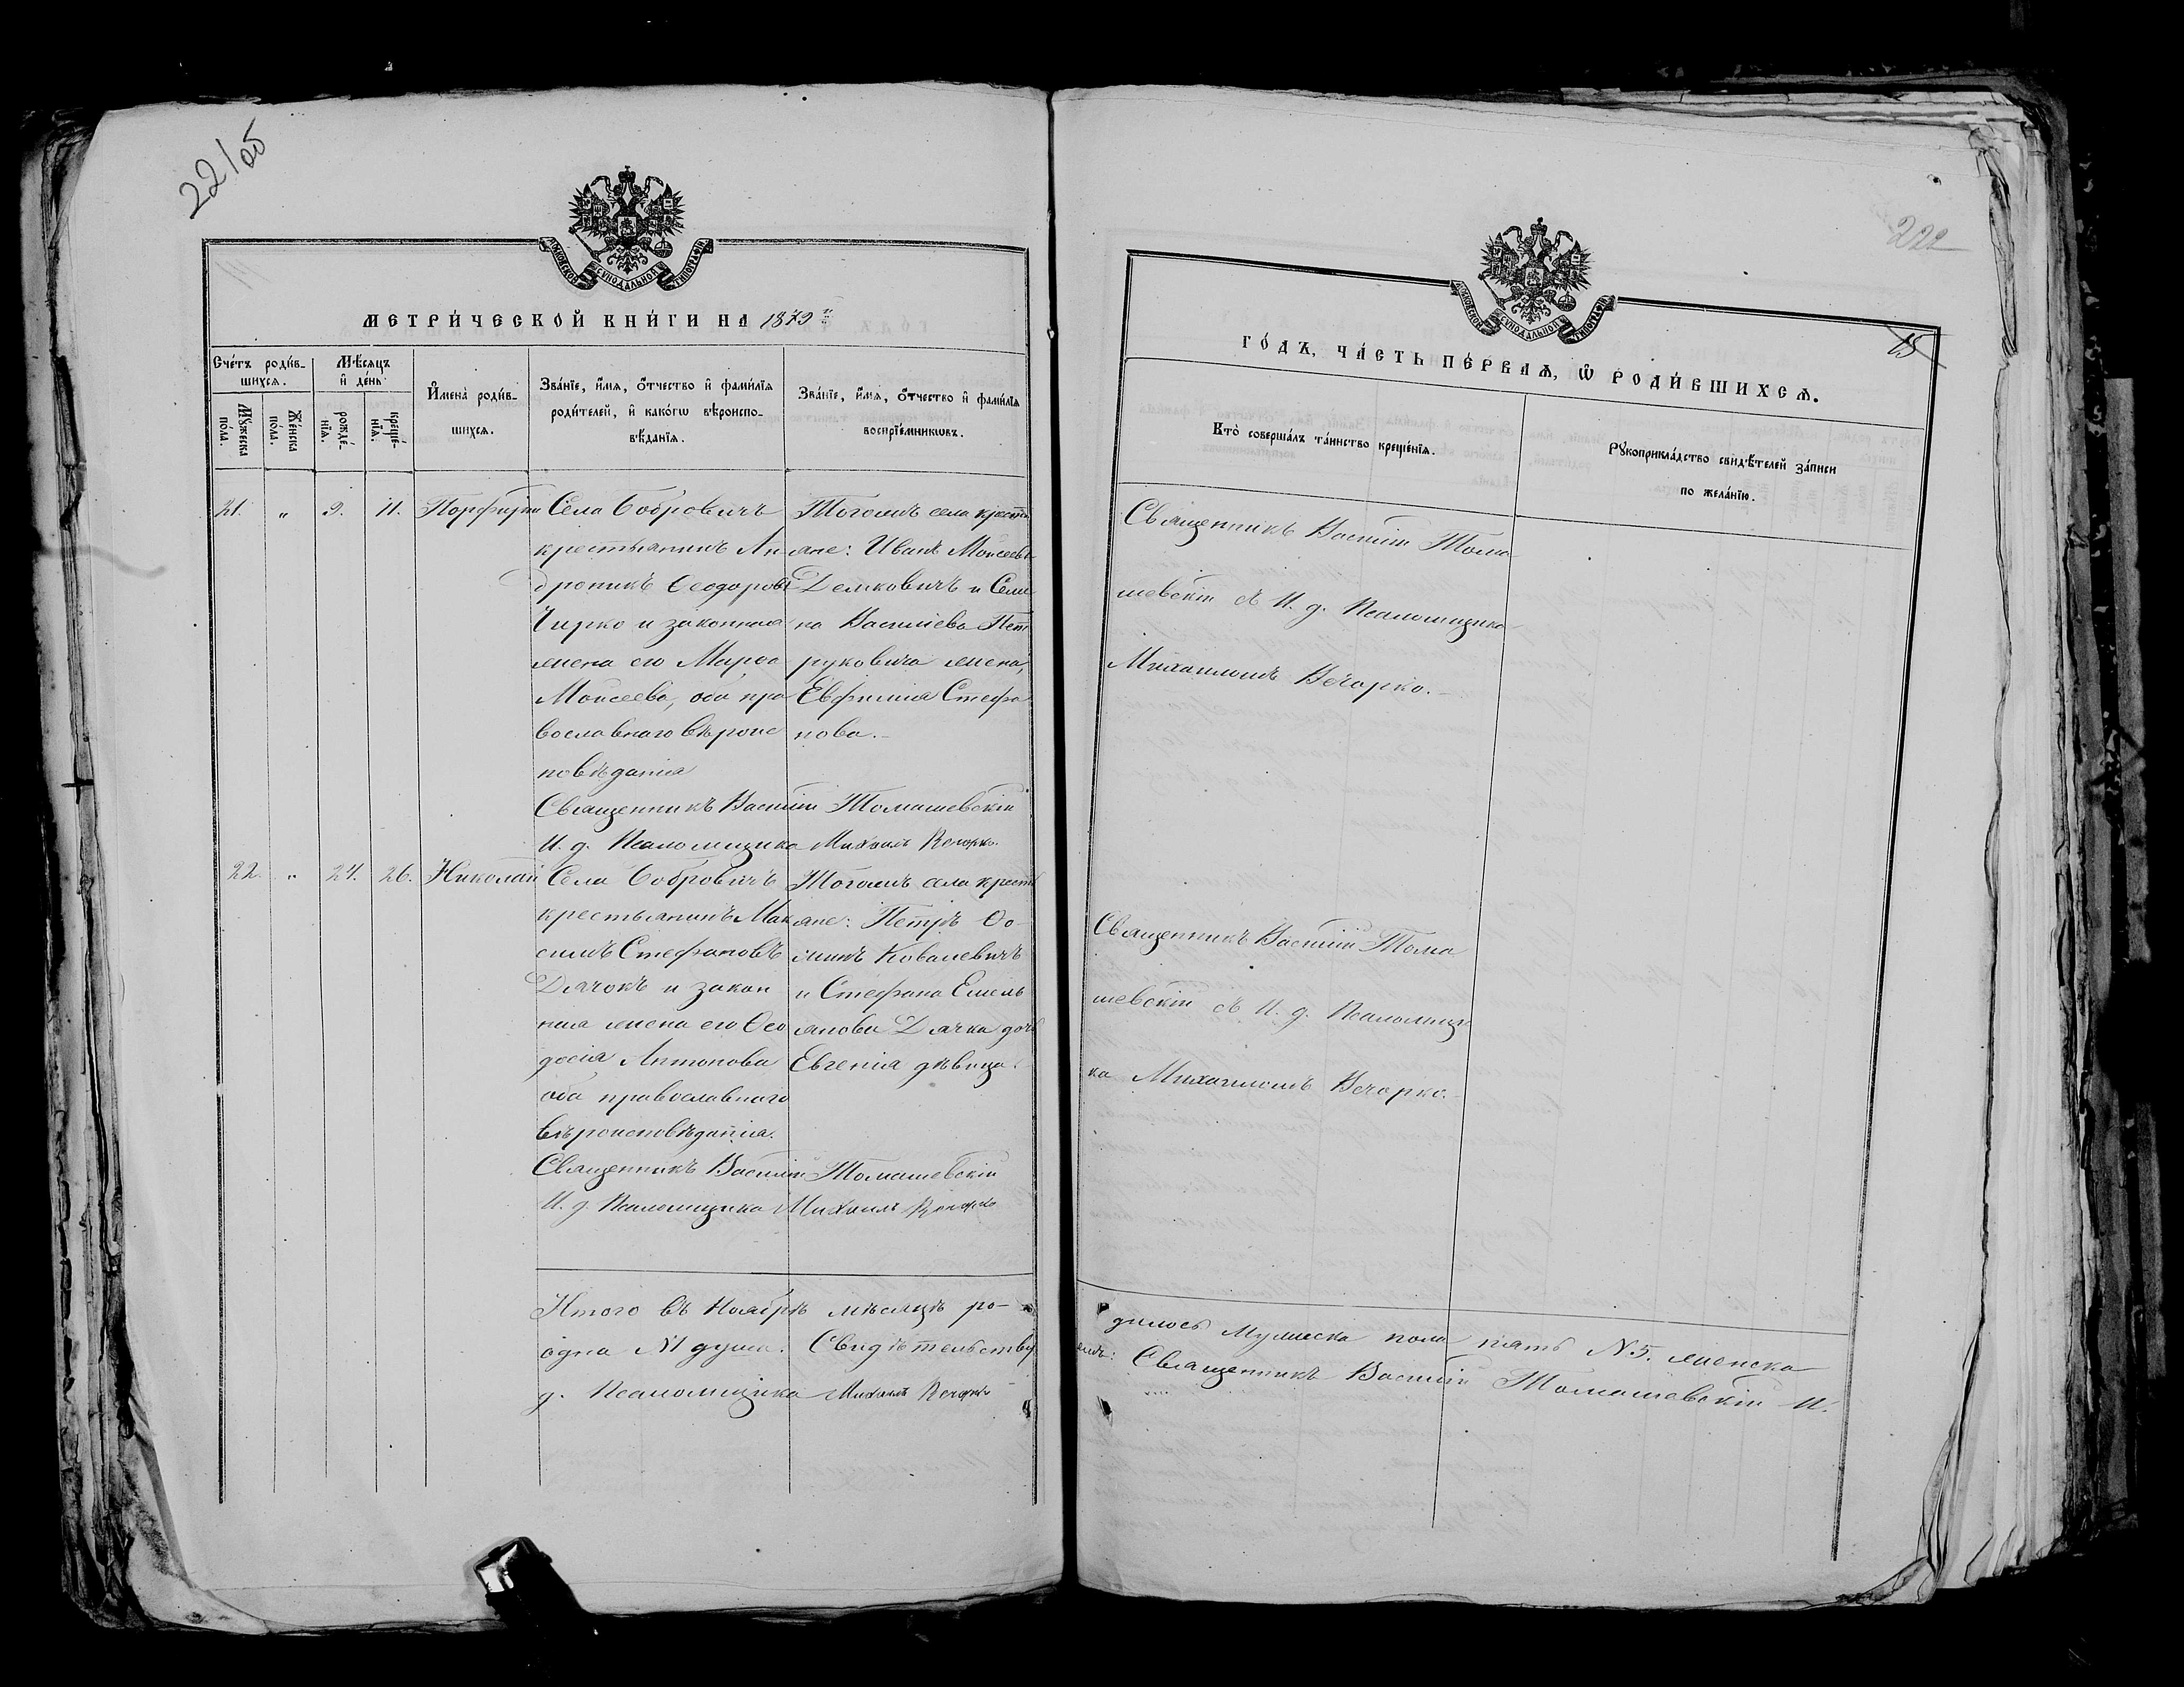 22 об
МОСКОВСКОЙ СѴНОДАЛЬНОЙ ТИПОГРАФІИ
МЕТРИ́ЧЕСКОЙ КНИ́ГИ НА 1879й
Сче́тъ роди́в-
шихсѧ.
Мѣ́сѧцъ
и҆ де́нь
Мꙋ́жеска
по́ла.
Же́нска
по́ла.
рожде́-
нїѧ.
креще́-
нїѧ.
И҆мена̀ роди́в-
шихсѧ.
Зва́нїе, и҆́мѧ, ѻ҆́тчество и҆ фами́лїѧ
роди́телей, и҆ како́гѡ вѣроиспо-
вѣ́данїѧ.
Зва́нїе, и҆́мѧ, ѻ҆́тчество и҆ фами́лїѧ
воспрїе́мникѡвъ.
21. " 9. 11. Порфирій
Села Бобровичъ
крестьянинъ Ан
дроникъ Ѳеодоровъ
Чирко и законная
жена его Марѳа
Моисеева, оба пра
вославнаго вѣроис
повѣданія
Тогожъ села кресть
яне: Иванъ Моисеевъ
Демковичъ и Семе
на Васильева Пет
руковича жена,
Евфимія Стефа
нова.
Священникъ Василій Томашевскій
И. д. Псаломщика Михаилъ Вечорко.
22. " 24. 26. Николай
Села Бобровичъ
крестьянинъ Мак
симъ Стефановъ
Дячокъ и закон
ная жена его Ѳео
досія Антонова
оба православнаго
вѣроисповѣданія.
Тогожъ села кресть
яне: Петръ Ѳо
минъ Ковалевичъ
и Стефана Емель
янова Дячка дочь
Евгенія дѣвица.
Священникъ Василій Томашевскій
И. д. Псаломщика Михаилъ Вечорко
Итого въ Ноябрѣ мѣсяцѣ ро-
одна №1 душа. Свидѣтельству
д. Псаломщика Михаилъ Вечорко
222
МОСКОВСКОЙ СѴНОДАЛЬНОЙ ТИПОГРАФІИ
15
ГО́ДЪ, ЧА́СТЬ ПЕ́РВАѦ, Ѡ҆ РОДИ́ВШИХСѦ.
Кто̀ соверша́лъ та́инство креще́нїѧ.
Рꙋкоприкла́дство свидѣ́телей за́писи
по жела́нїю.
Священникъ Василій Тома
шевскій съ И. д. Псаломщика
Михаиломъ Вечорко.
Священникъ Василій Тома
шевскій съ И. д. Псаломщи
ка Михаиломъ Вечорко.
дилось Мужеска пола пять №5. женска
емъ: Священникъ Василій Томашевскій И.